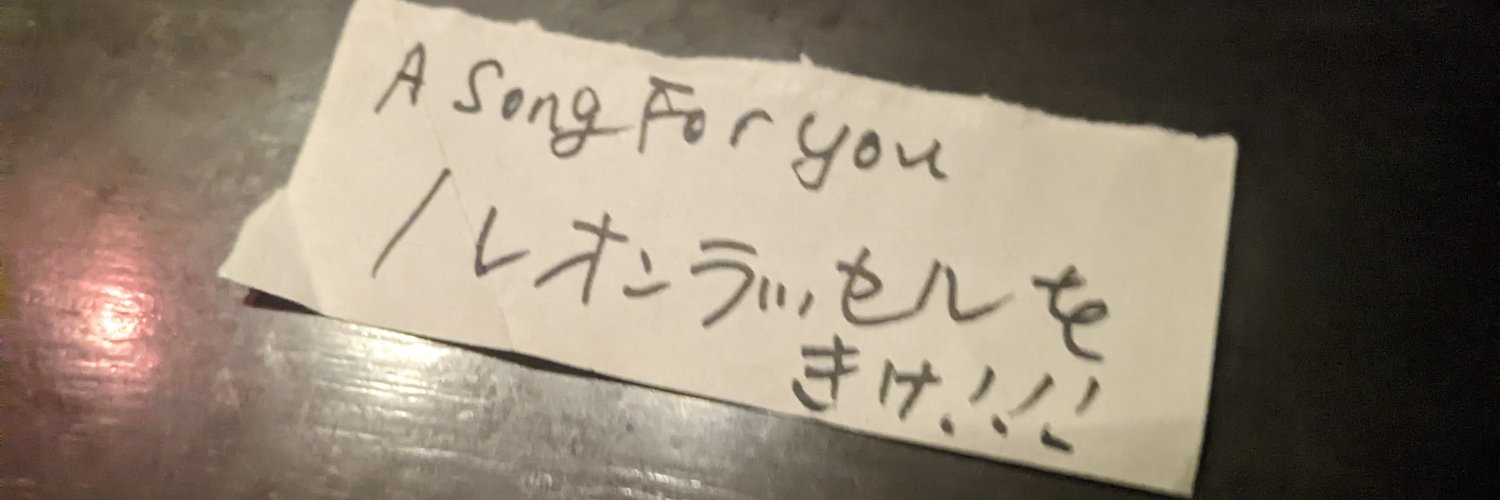 A Song For you
/レオンラッセルを
きけ!!!